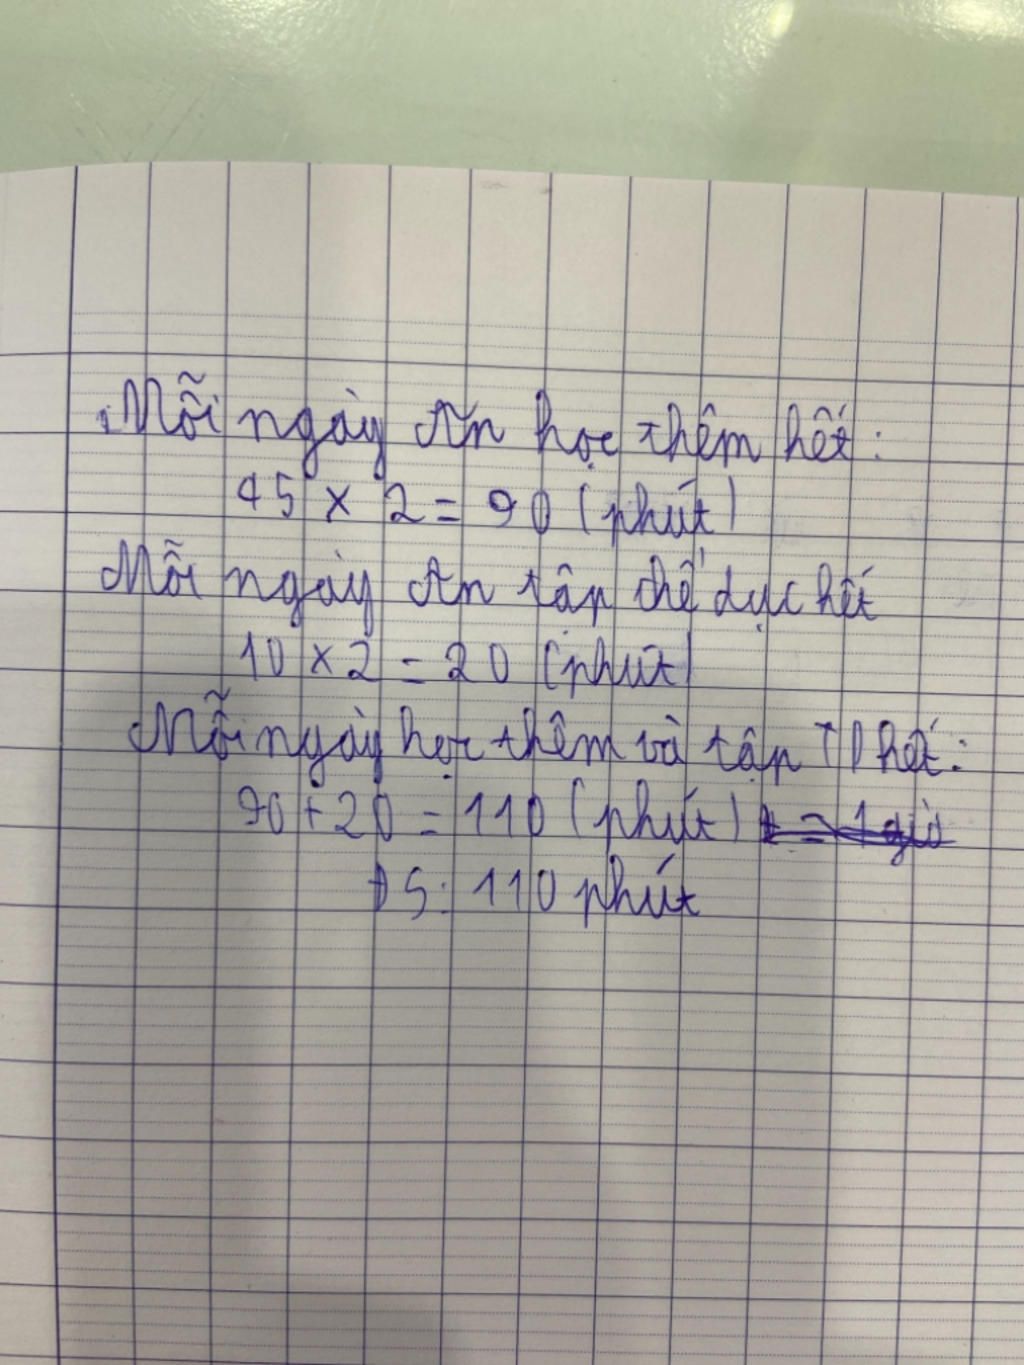 Mỗi ngày An học thêm hết:
45 x 2 = 90 (phút)
Mỗi ngày An tập thể dục hết
10 x 2 = 20 (phút)
Mỗi ngày học thêm và tập TD hết:
90 + 20 = 110 (phút)
ĐS: 110 phút